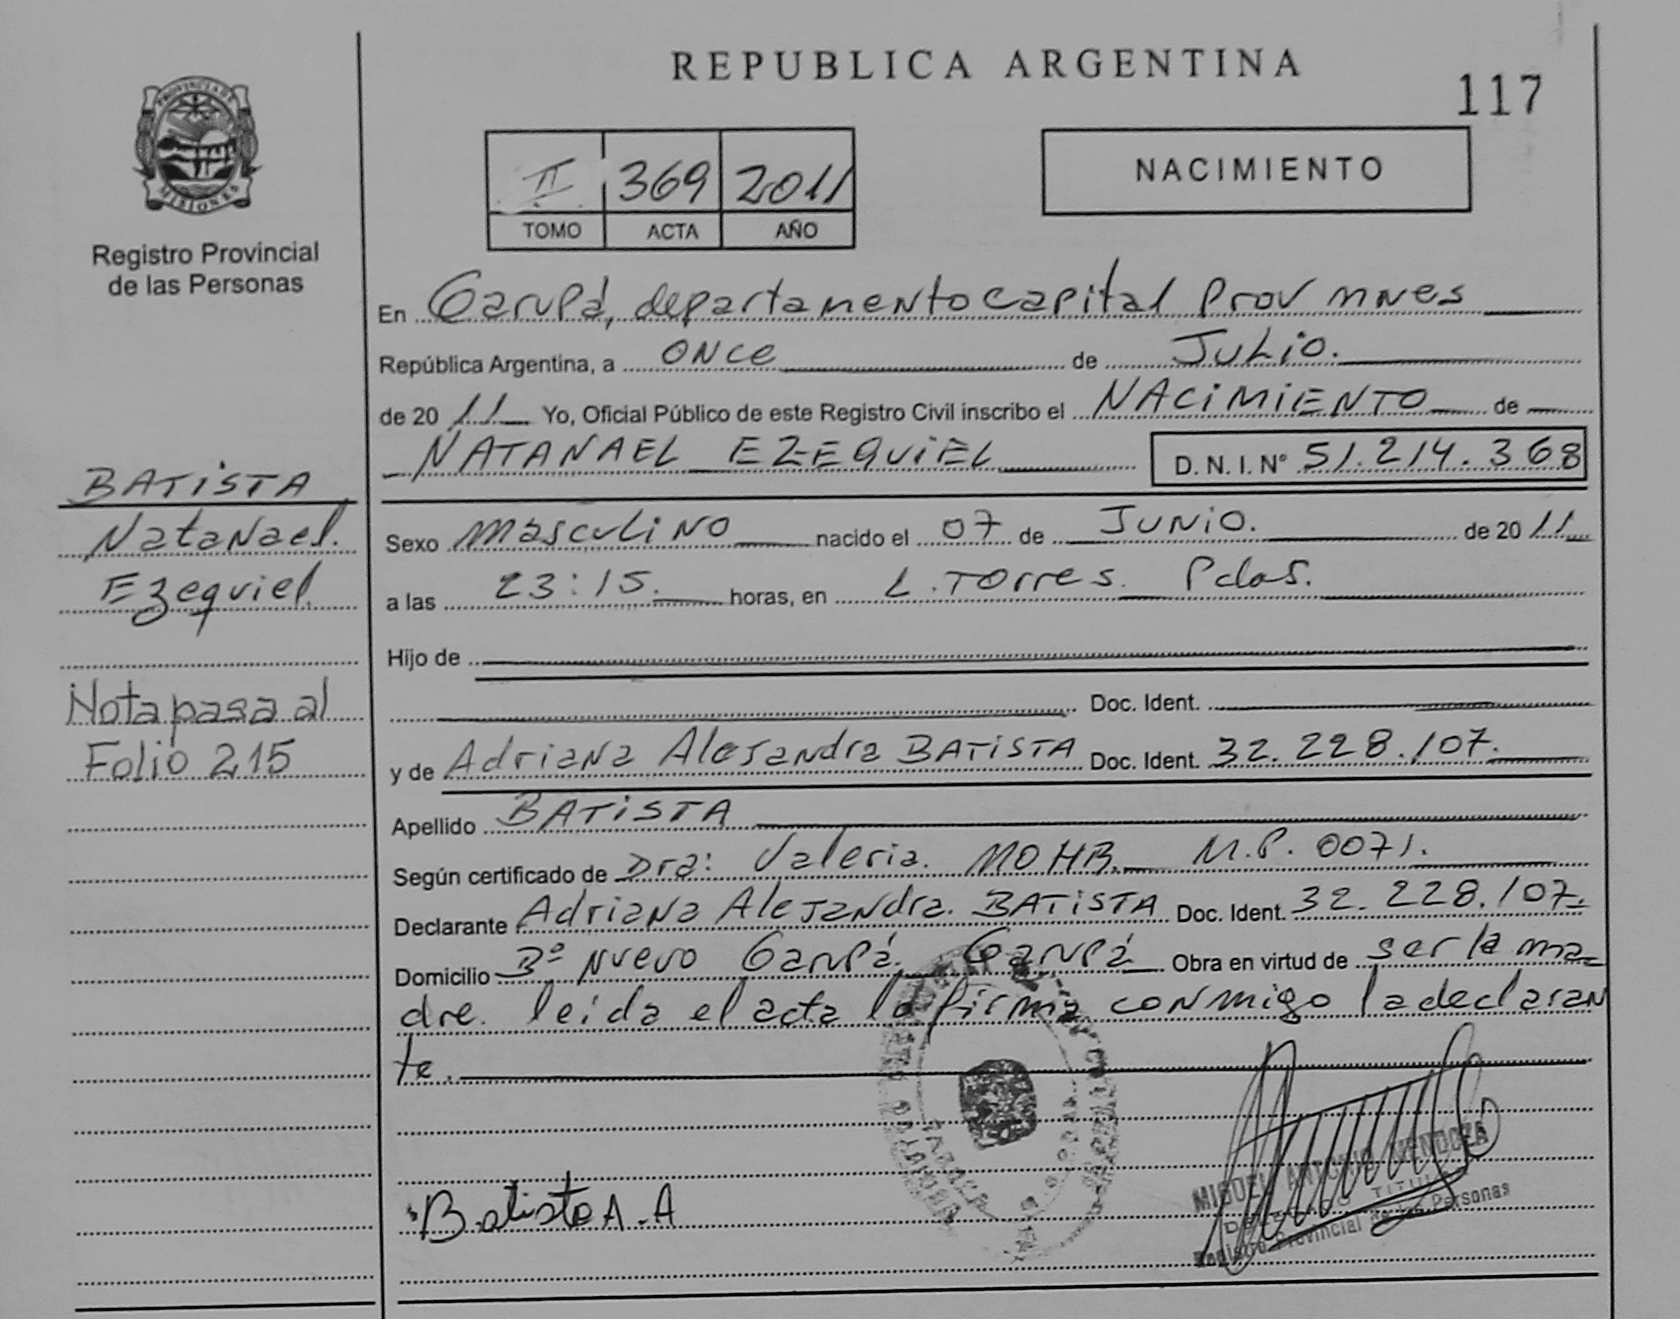 REPUBLICA ARGENTINA
117
PROVINCIA DE
MISIONES
Registro Provincial
de las Personas
II 369 2011
TOMO ACTA AÑO
NACIMIENTO
En Garupá, departamento capital Prov mnes
República Argentina, a once de Julio.
de 2011 Yo, Oficial Público de este Registro Civil inscribo el NACIMIENTO de
NATANAEL EZEQUIEL D.N.I.Nº 51.214.368
BATISTA
Natanael.
Ezequiel
Nota pasa al
Folio 215
Sexo masculino nacido el 07 de JUNIO. de 2011
a las 23:15. horas, en L. Torres. Pdas.
Hijo de
Doc. Ident.
y de Adriana Alejandra BATISTA Doc. Ident. 32.228.107.
Apellido BATISTA
Según certificado de Dra: Valeria. MOHR. M.P. 0071.
Declarante Adriana Alejandra. BATISTA Doc. Ident. 32.228.107.
Domicilio Bº Nuevo Garupá. Garupá Obra en virtud de ser la ma
dre. leida el acta la firma conmigo la declaran
te.
Batista A. A
MIGUEL ANTONIO MENDOZA
Registro Provincial de las Personas